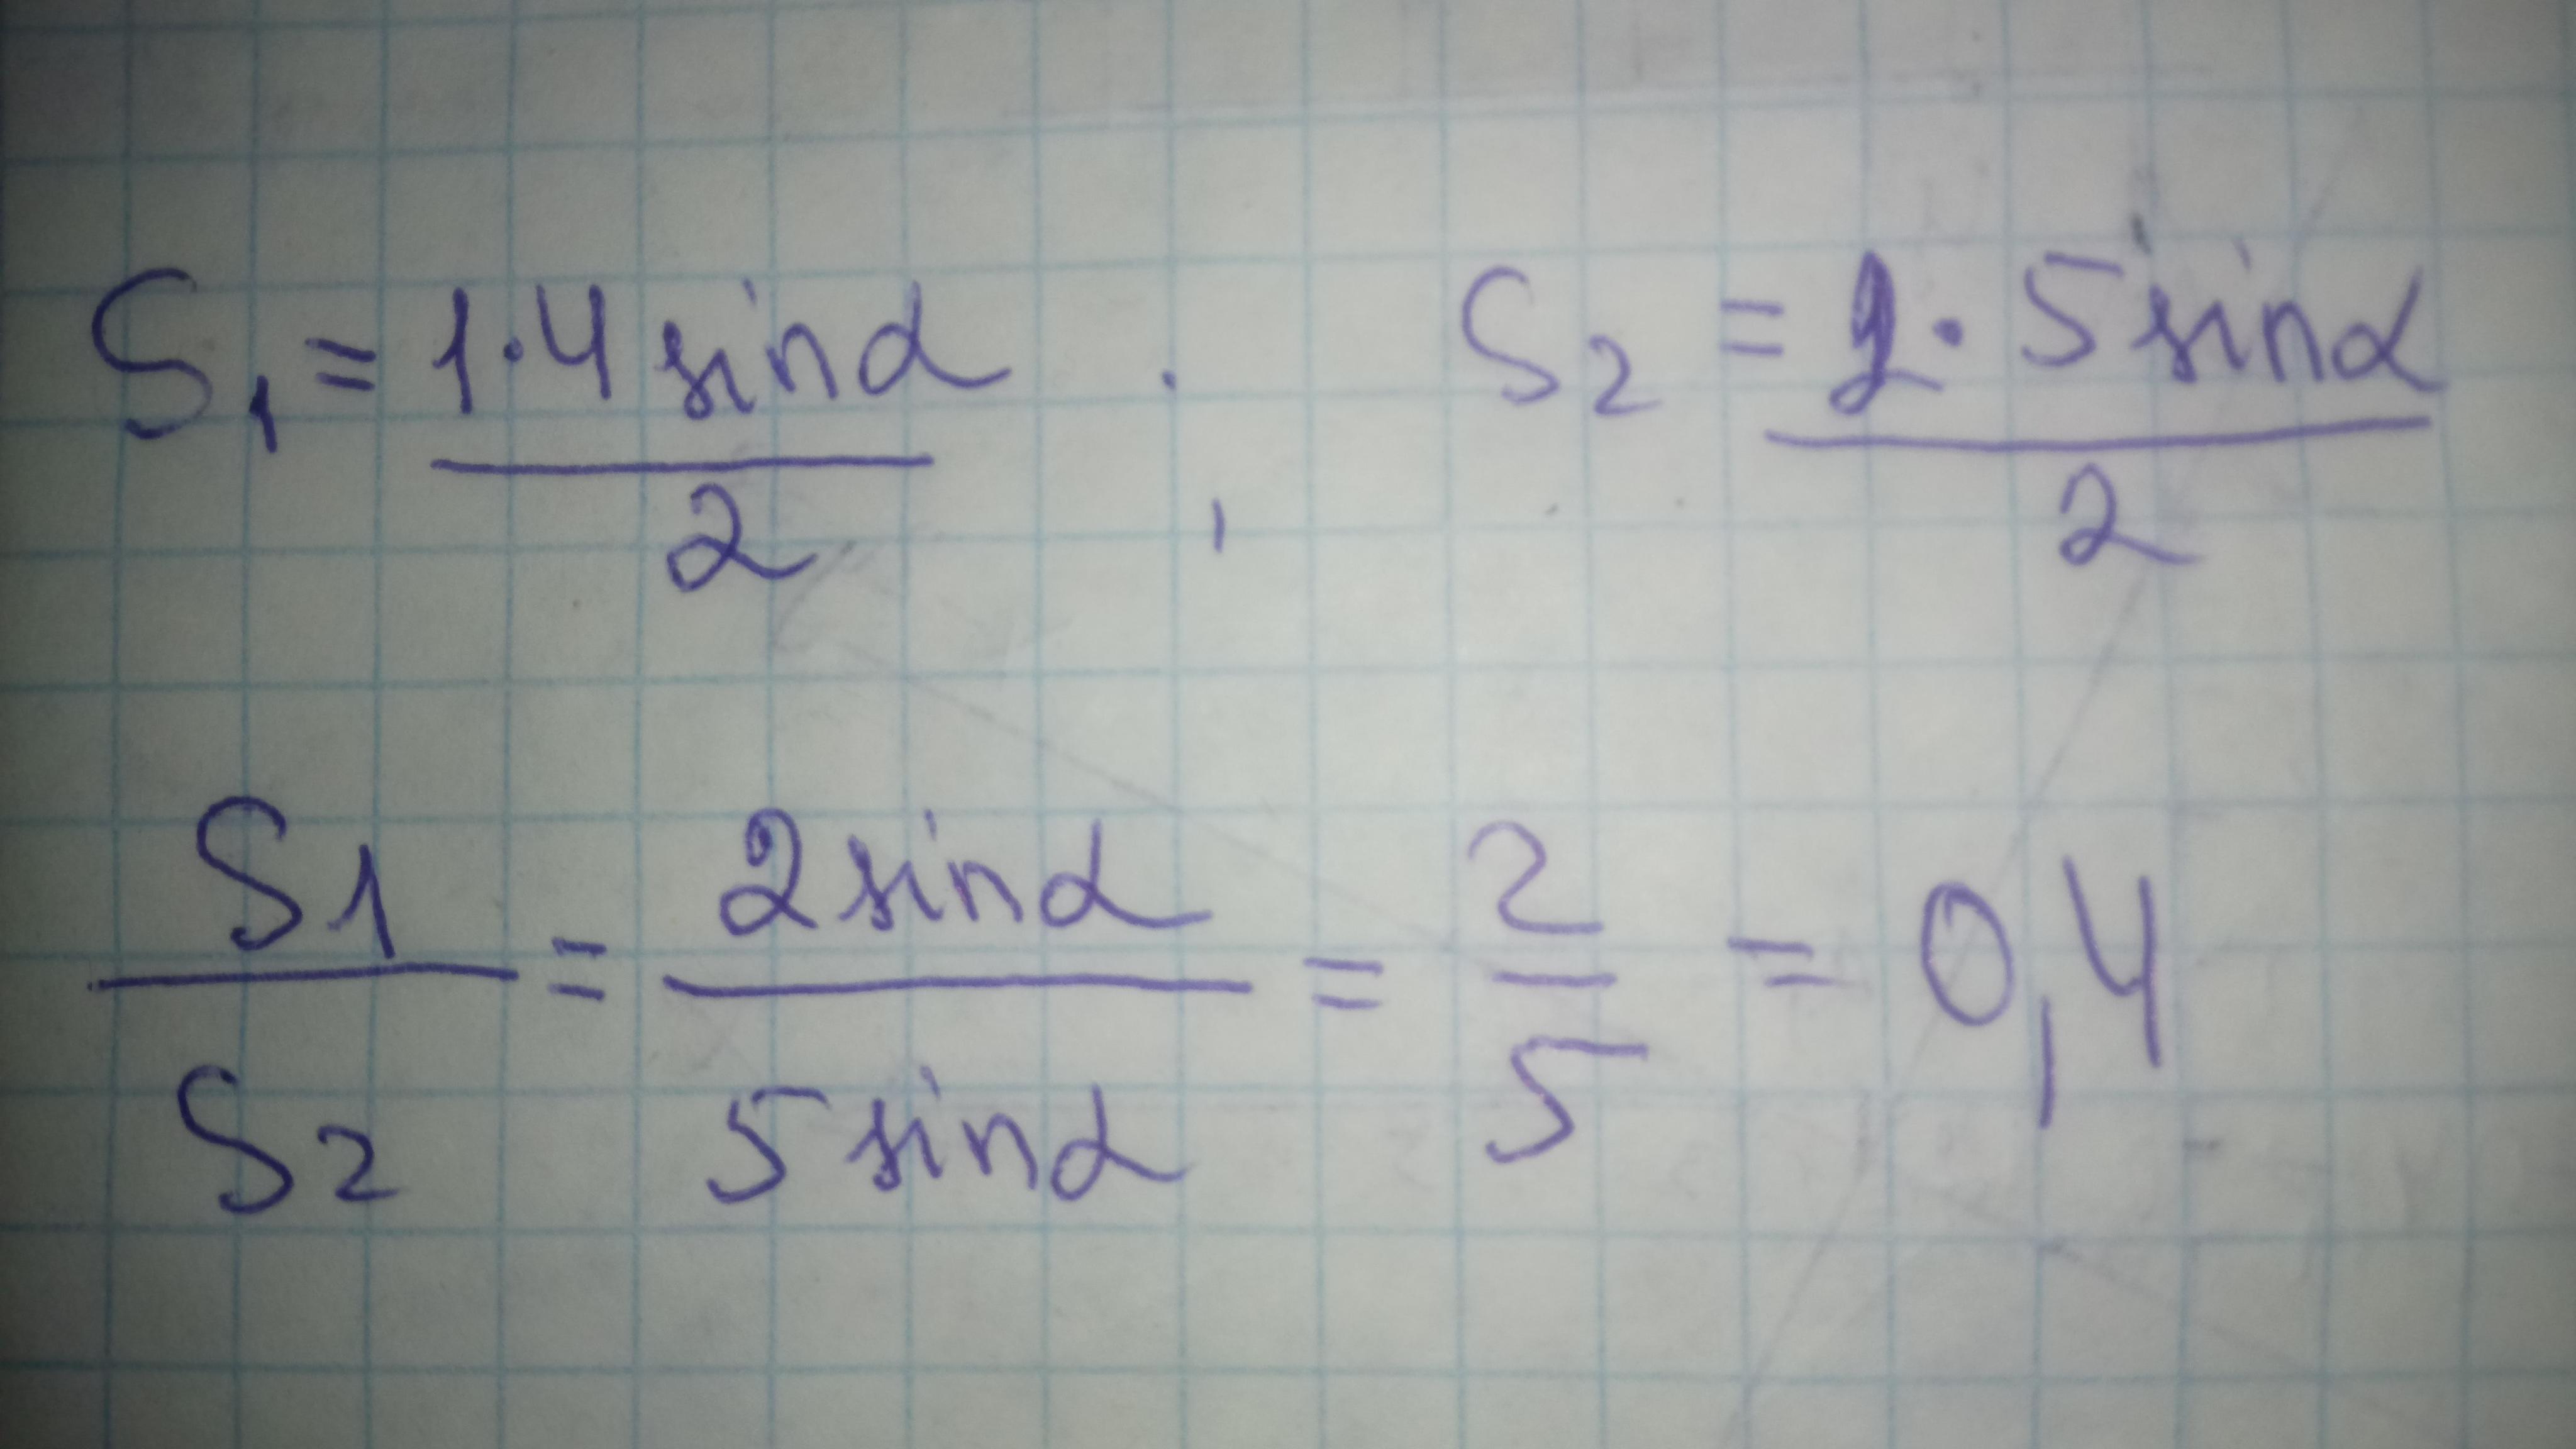 S₁ = (1·4 sin α)/2 ; S₂ = (2·5 sin α)/2
S1/S2 = (2 sin α)/(5 sin α) = 2/5 = 0,4